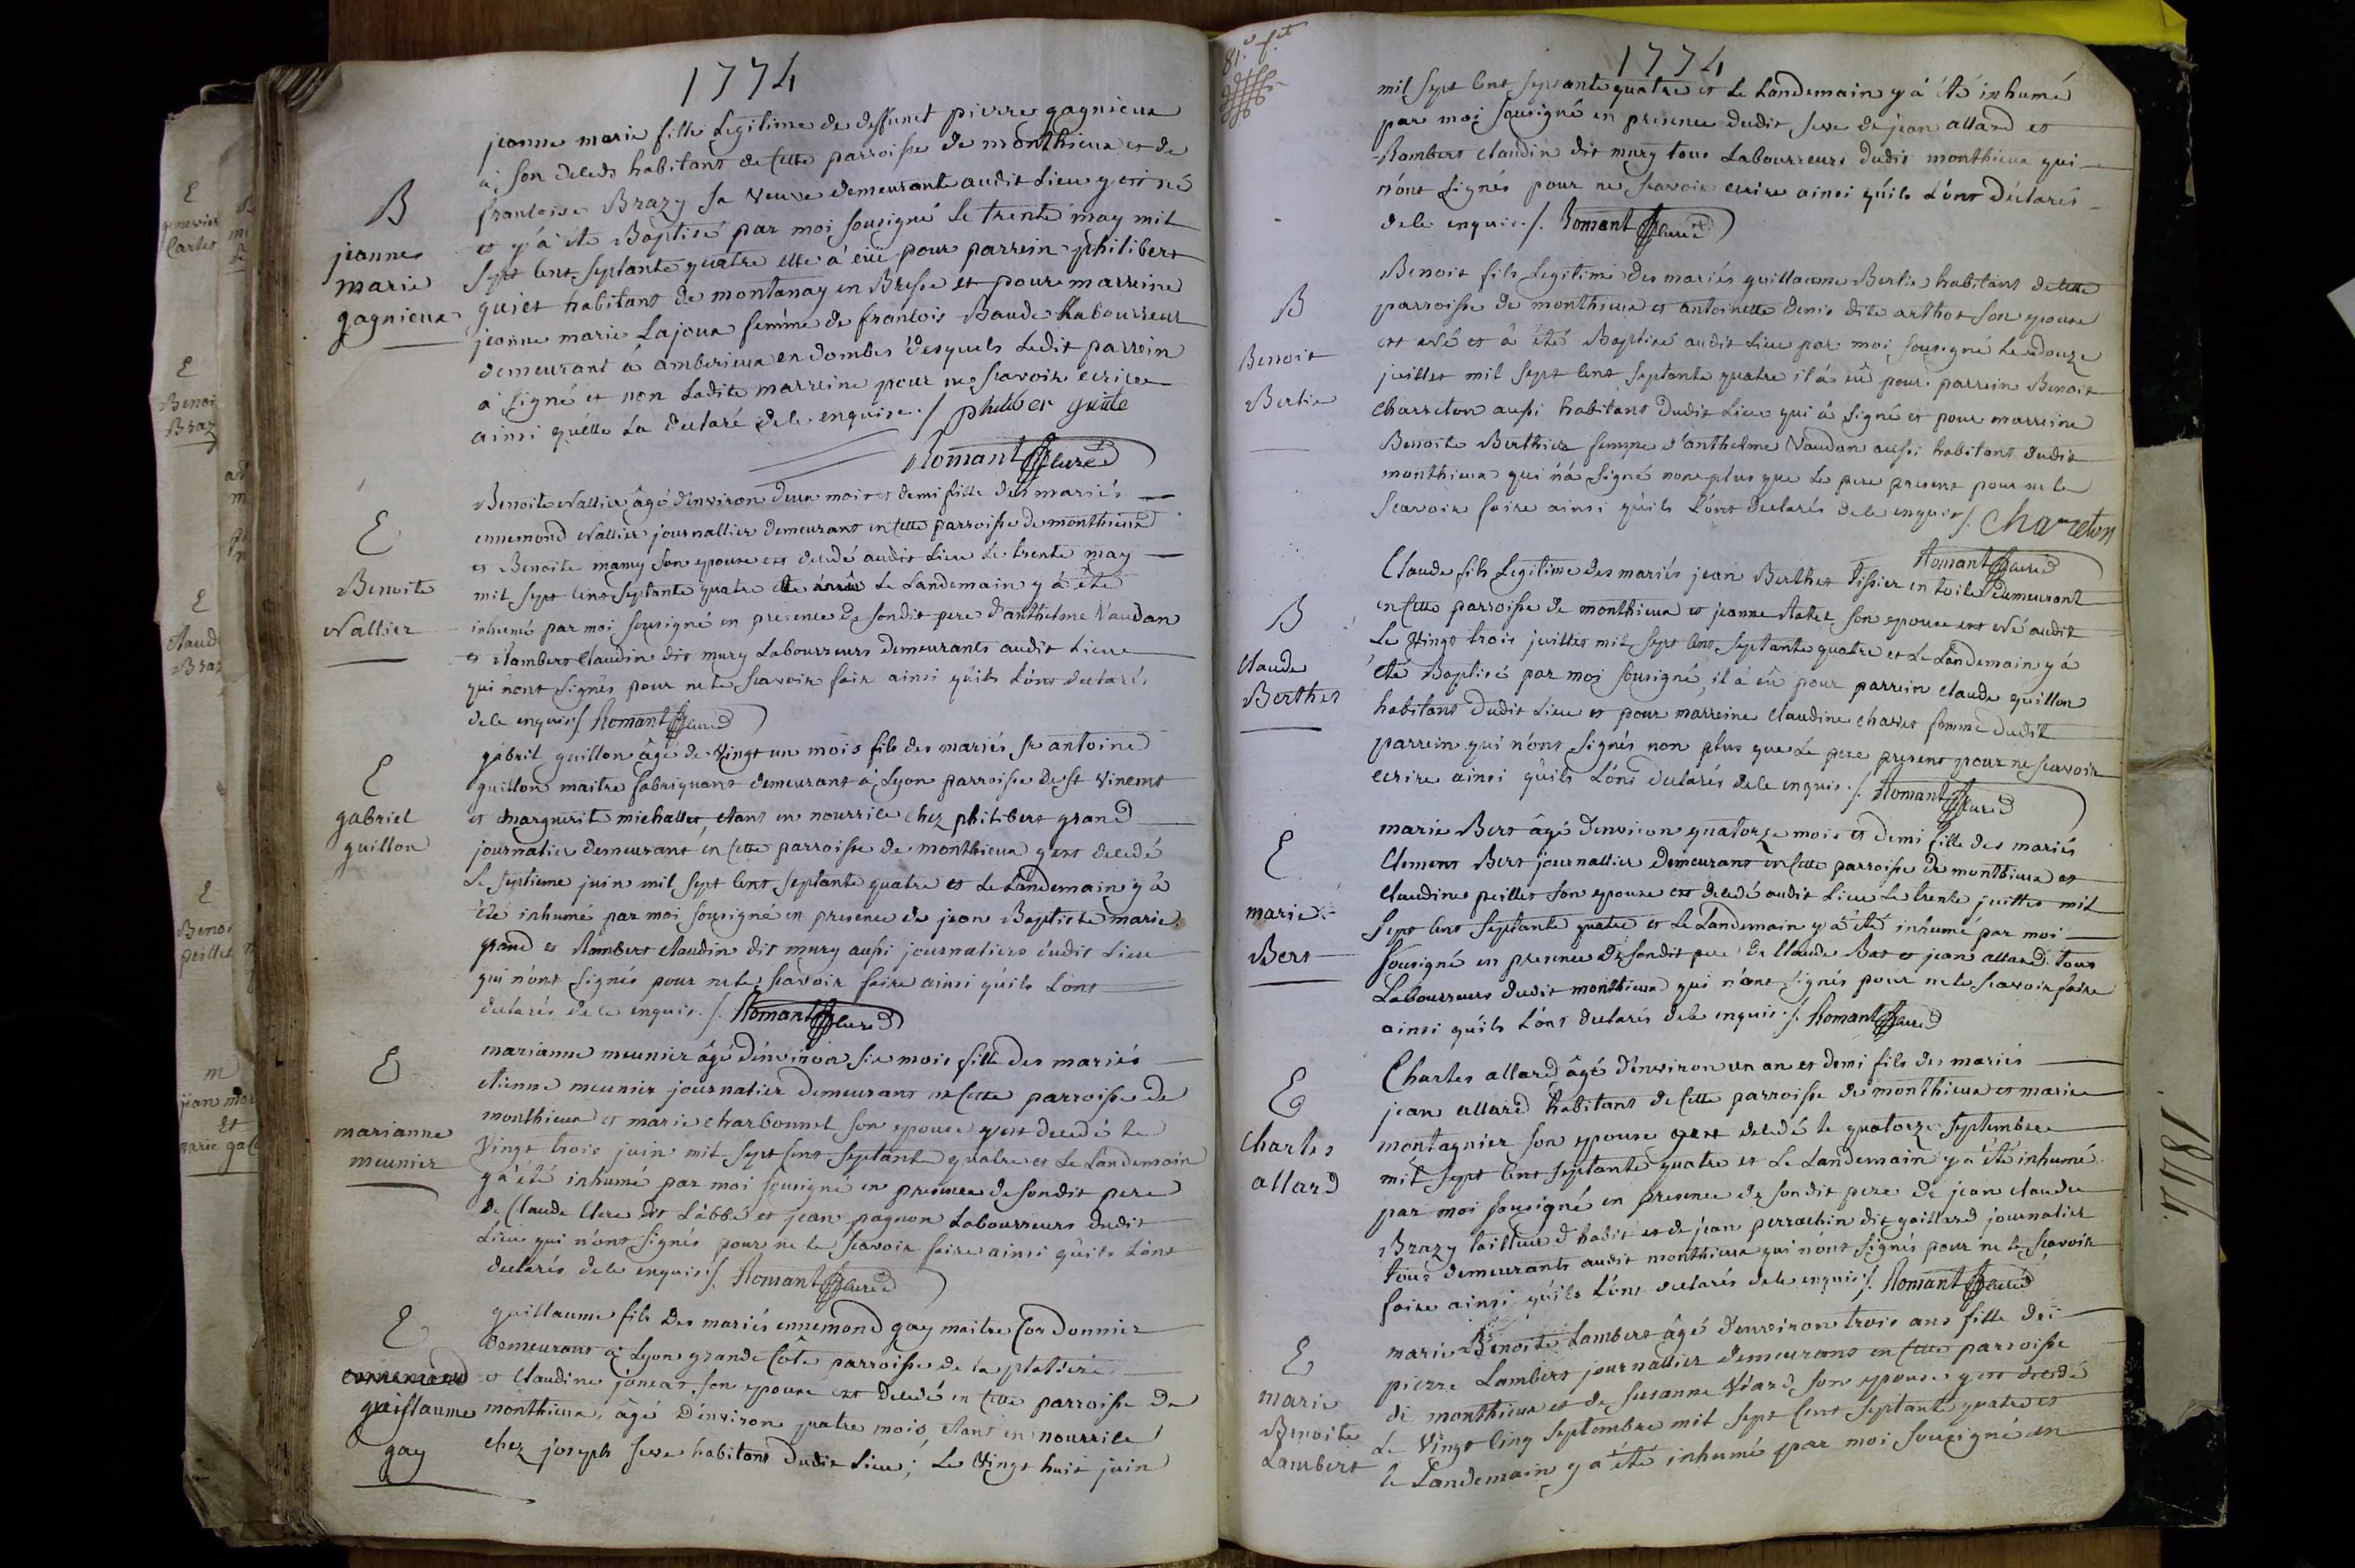 1774
jeanne marie fille Legitime de deffunct pierre gagnieux
à son deceds habitant de cette parroisse de monthieux et de
francoise Brazy sa veuve demeurante audit Lieu y est né
et y a été Baptisé par moi sousigné le trente may mil
sept cent septante quatre elle à eüe pour parrein philibert
guiet habitant de montanay en Bresse et pour marreine
jeanne marie Lajoux femme de francois Baude Labourreur
demeurant à amberieux en dombes desquels Ledit parrein
à signé et non Ladite marreine pour ne scavoir ecrire
ainsi quélle La declaré de ce enquise ./. philiber guiete
Romant curé
B
jeanne
marie
gagnieux
Benoite Vallier âgé denviron deux mois et demi fille des mariés
ennemond Vallier journallier demeurant en cette parroisse de monthieux
et Benoite mamy son epouse est decedé audit Lieu Le trente may
mil sept cent septante quatre et Le Landemain y à été
inhumé par moi sousigné en presence de sondit pere danthelme Vaudan
et Rambert Claudin dit mury Labourreurs demeurants audit Lieu
qui nont signés pour ne le scavoir fair ainsi quils Lont declarés
de ce enquis ./. Romant curé
E
Benoite
Vallier
gabril guillon âgé de Vingt un mois fils des mariés sr antoine
guillon maitre fabriquant demeurant à Lyon parroisse de st Vincent
et marguerite michallet, etant en nourrice chez philibert grand
journalier demeurant en cette parroisse de monthieux y est decedé
Le septieme juin mil sept cent septante quatre et Le Landemain y à
été inhumé par moi sousigné en presence de jean Baptiste marie
grand et Rambert Claudin dit mury aussi journaliers dudit Lieu
qui nont signés pour ne le scavoir faire ainsi quils Lont
declarés de ce enquis ./. Romant curé
E
gabriel
guillon
marianne meunier âgé denviron six mois fille des mariés
etienne meunier journalier demeurant en cette parroisse de
monthieux et marie charbonnet son epouse y est decedé le
Vingt trois juin mil sept cent septante quatre et Le Landemain
y à été inhumé par moi sousigné en presence de sondit pere
de Claude Clere dit Labbé et jean pagnon Labourreurs dudit
Lieu qui nont signés pour ne le scavoir faire ainsi quils Lont
declarés de ce enquis ./. Romant curé
E
marianne
meunier
guillaume fils des mariés ennemond gay maitre Cordonnier
demeurant à Lyon grande Côte parroisse de la platiere
et claudine son epouse est decedé en cette parroisse de
monthieux, âgé denviron quatre mois, etant en nourrice
chez joseph seve habitant dudit Lieu; Le Vingt huit juin
E
guillaume
gay
1774
mil sept cent septante quatre et Le Landemain y à été inhumé
par moi sousigné en presence dudit seve de jean allard et
Rambert claudin dit mury tous Labourreurs dudit monthieux qui
nont signés pour ne scavoir ecrire ainsi quils Lont declarés
de ce enquis ./. Romant curé
Benoit fils Legitime des mariés guillaume Berlie habitant de cette
parroisse de monthieux et antoinette denis dite arthot son epouse
est né et à été Baptisé audit Lieu par moi sousigné le douze
juillet mil sept cent septante quatre il à eü pour parrein Benoit
charreton aussi habitant dudit Lieu qui à signé et pour marreine
Benoite Berthier femme danthelme Vaudan aussi habitant dudit
monthieux qui na signé non plus que Le pere present pour ne le
scavoir faire ainsi quils Lont declarés de ce enquis ./. Charreton
Romant curé
B
Benoit
Berlie
Claude fils Legitime des mariés jean Berthet tissier en toile demeurant
en cette parroisse de monthieux et jeanne son epouse est né audit
Le Vingt trois juillet mil sept cent septante quatre et Le Landemain y à
été Baptisé par moi sousigné, il à eü pour parrein claude guillon
habitant dudit Lieu et pour marreine claudine charier femme dudit
parrein qui nont signés non plus que Le pere present pour ne scavoir
ecrire ainsi quils Lont declarés de ce enquis ./. Romant curé
B
Claude
Berthet
marie Bert âgé denviron quatorze mois et demi fille des mariés
Clement Bert journallier demeurant en cette parroisse de monthieux et
claudine peillet son epouse est decedé audit Lieu Le trente juillet mil
sept cent septante quatre et Le Landemain y à été inhumé par moi
sousigné en presence de sondit pere de Claude Bat et jean allard tous
Labourreurs dudit monthieux qui nont signés pour ne le scavoir faire
ainsi quils Lont declarés de ce enquis ./. Romant curé
E
marie
Bert
Charles allard âgé denviron un an et demi fils des mariés
jean allard habitant de cette parroisse de monthieux et marie
montagnier son epouse y est decedé le quatorze septembre
mil sept cent septante quatre et Le Landemain y à été inhumé
par moi sousigné en presence de sondit pere de jean claude
Brazy tailleur d habit et de jean perrachin dit gaillard journalier
tous demeurants audit monthieux qui nont signés pour ne le scavoir
faire ainsi quils Lont declarés de ce enquis ./. Romant curé
E
Charles
allard
marie Benoite Lambert âgé denviron trois ans fille de
pierre Lambert journallier demeurant en cette parroisse
de monthieux et de susanne Viard son epouse y est decedé
Le Vingt cinq septembre mil sept cent septante quatre et
le Landemain y à été inhumé par moi sousigné en
E
marie
Benoite
Lambert
1844